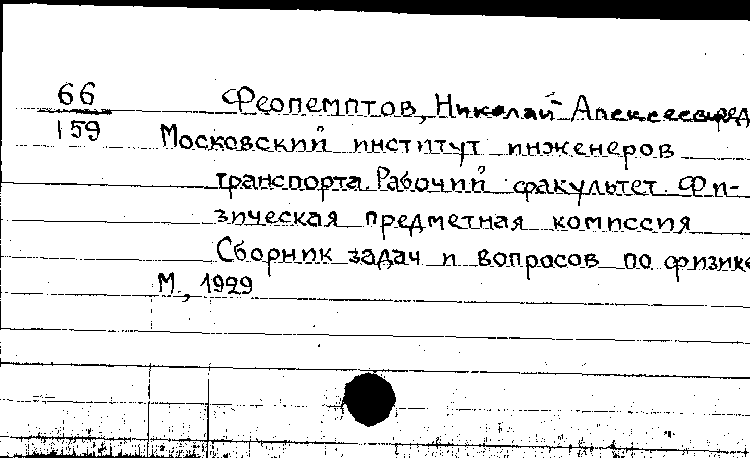 66
159
Феопемптов, Николай Алексеевич, ред
Московский институт инженеров
транспорта. Рабочий факультет. Фи-
зическая предметная комиссия
Сборник задач и вопросов по физике
М., 1929